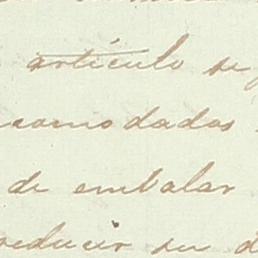 artículo se
acomodados
de embalar
reducir su d